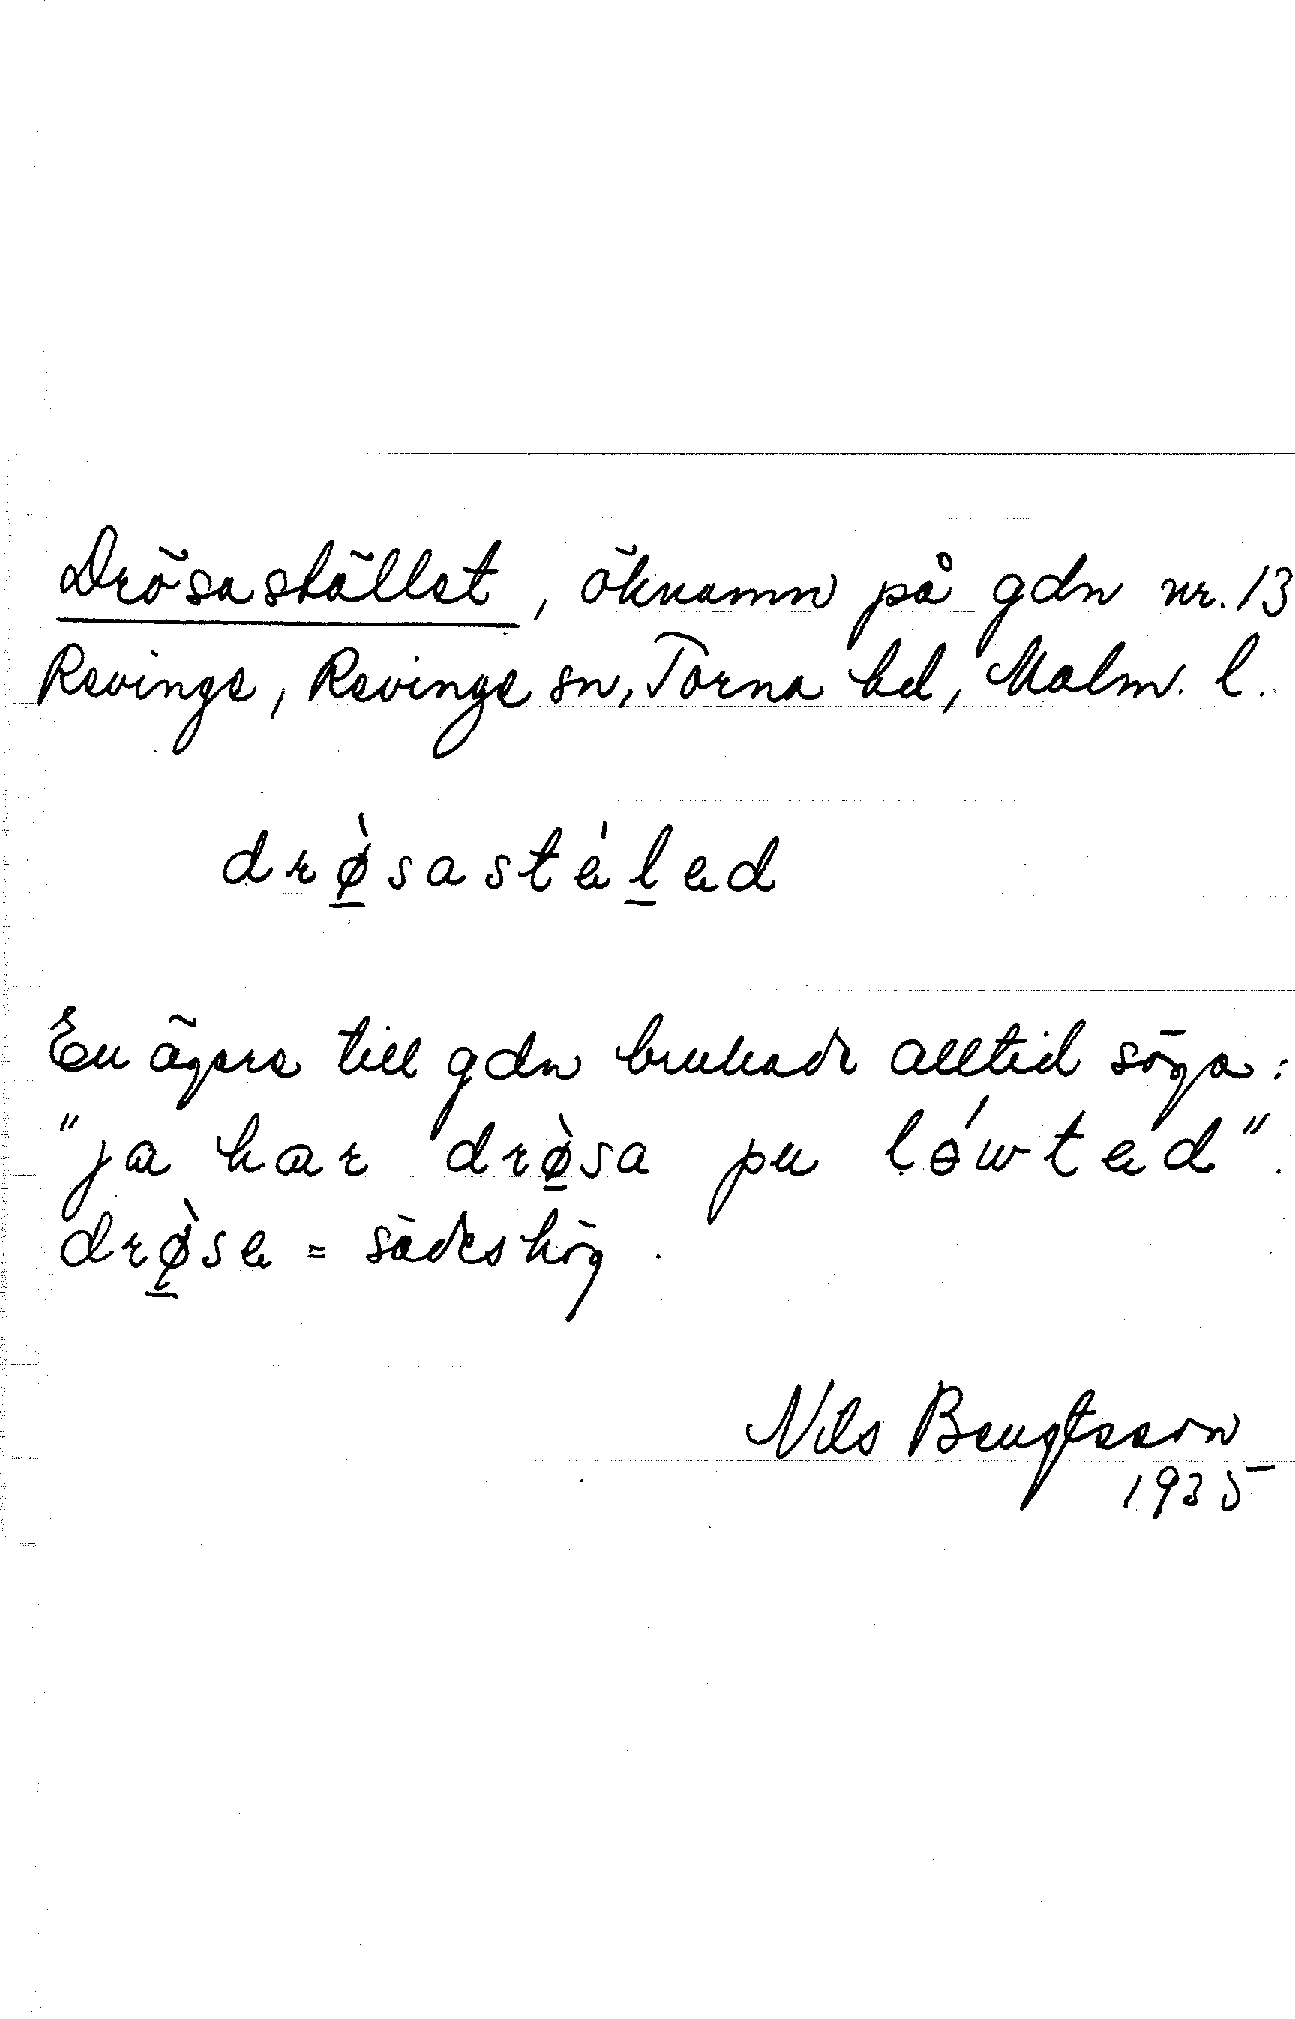 Drösastället, öknamn på gdn nr. 13
Revinge, Revinge sn, Torna hd, Malm. l.
drø̀sastéled
En ägare till gdn brukade alltid säga:
"ja har drø̀sa pu lówted".
drø̀se = sädeshög.
Nils Bengtsson
1935